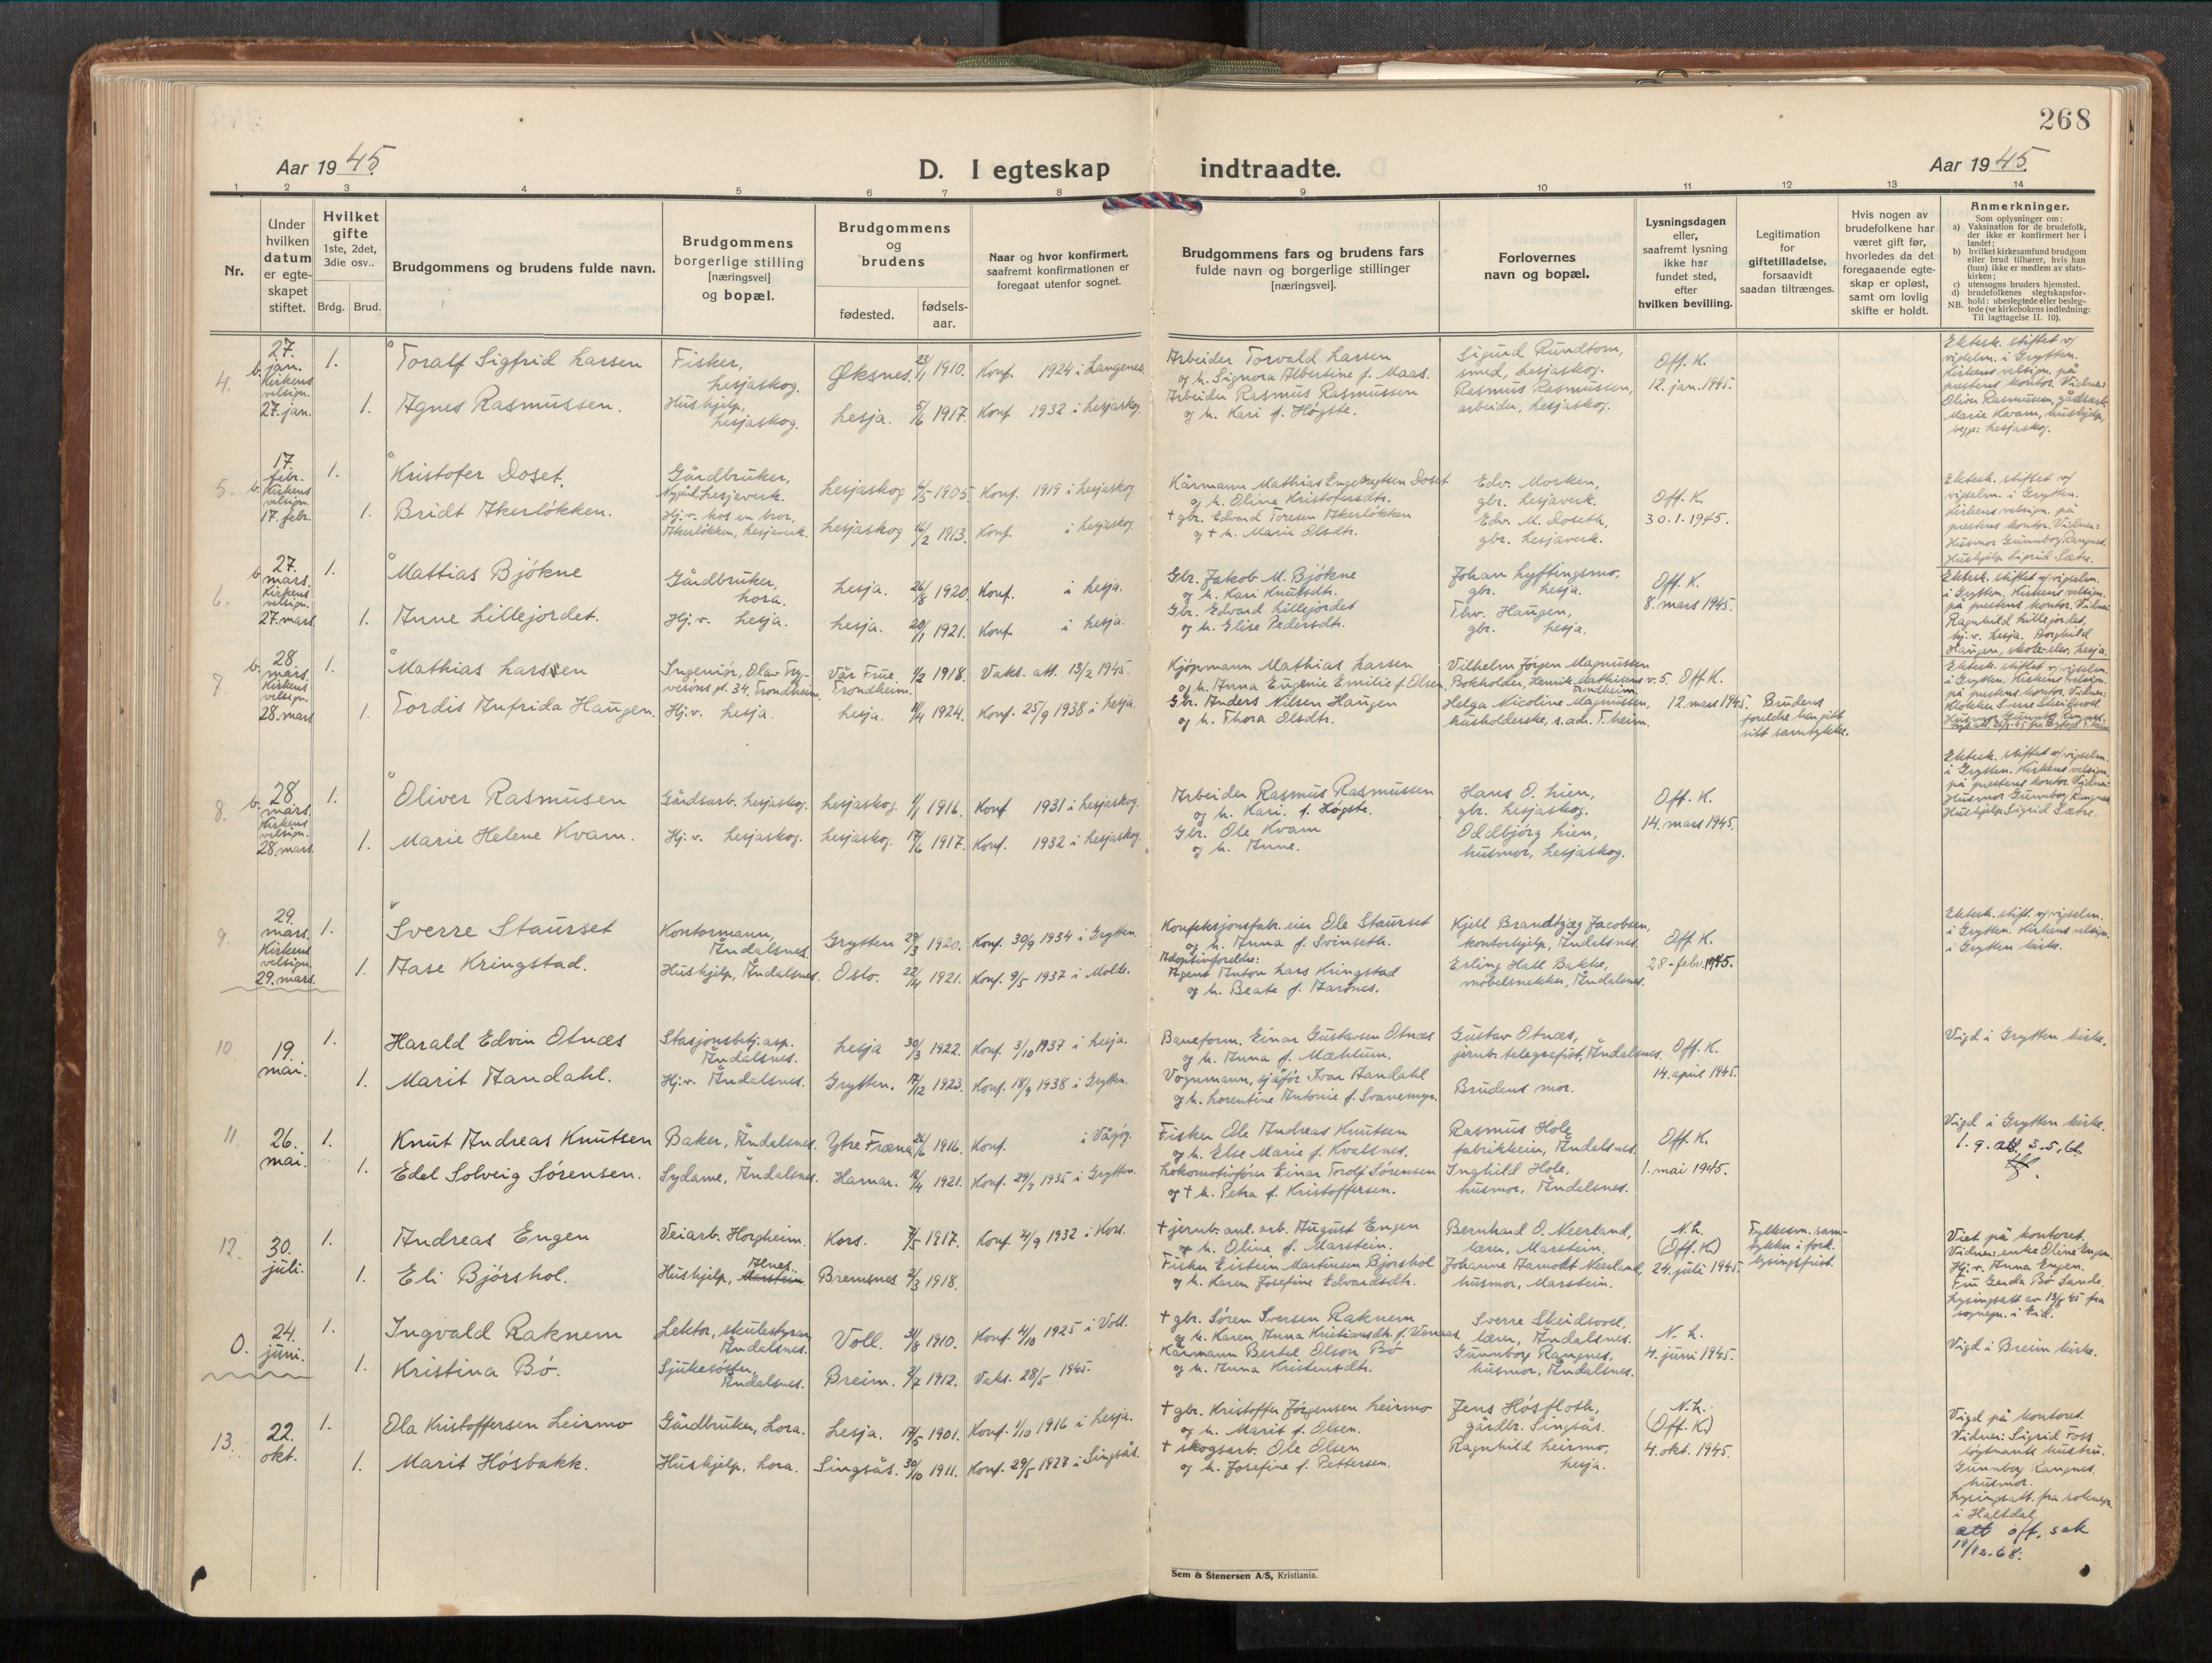 268
Aar 1945.
D. I egteskap indtraadte.
Aar 1945.
1 2 3 4 5 6 7 8 9 10 11 12 13 14
Nr.
Under hvilken datum er egte-
skapet stiftet.
Hvilket gifte
1ste, 2det, 3die osv..
Brdg. Brud.
Brudgommens og brudens fulde navn.
Brudgommens borgerlige stilling
[næringsvei]
og bopæl.
Brudgommens og brudens
fødested.
fødsels-
aar.
Naar og hvor konfirmert,
saafremt konfirmationen er
foregaat utenfor sognet.
Brudgommens fars og brudens fars
fulde navn og borgerlige stillinger
[næringsvei].
Forlovernes
navn og bopæl.
Lysningsdagen
eller,
saafremt lysning
ikke har
fundet sted,
efter
hvilken bevilling.
Legitimation
for
giftetilladelse,
forsaavidt
saadan tiltrænges.
Hvis nogen av
brudefolkene har
været gift før,
hvorledes da det
foregaaende egte-
skap er opløst,
samt om lovlig
skifte er holdt.
Anmerkninger.
Som oplysninger om:
a) Vaksination for de brudefolk,
der ikke er konfirmert her i
landet;
b) hvilket kirkesamfund brudgom
eller brud tilhører, hvis han
(hun) ikke er medlem av stats-
kirken;
c) utensogns bruders hjemsted.
d) brudefolkenes slegtskapsfor-
hold: ubeslegtede eller besleg-
NB. tede (se kirkebokens indledning:
Til iagttagelse II. 10).
4. b. 27. jan. Kirkens velsign. 27. jan.
1. Toralf Sigfrid Larsen
Fisker, Lesjaskog.
Øksnes. 23/1 1910. Konf. 1924 i Langenes.
Arbeider Torvald Larsen
og h. Signora Albertine f. Maas.
Sigurd Rundtom,
smed, Lesjaskog.
Off. K.
12. jan. 1945.
1. Agnes Rasmussen.
Hushjelp, Lesjaskog.
Lesja. 5/6 1917. Konf. 1932 i Lesjaskog.
Arbeider Rasmus Rasmussen
og h. Kari f. Høgste.
Rasmus Rasmussen,
arbeider, Lesjaskog.
Ektesk. stiftet v/
vigselm. i Grytten.
Kirkens velsign. på
prestens kontor. Vidner:
Oliver Rasmussen, gårdsarb.
Marie Kvam, hushjelp,
begge: Lesjaskog.
5. b. 17. febr. Kirkens velsign. 17. febr.
1. Kristofer Doset.
Gårdbruker,
Nygård, Lesjaverk.
Lesjaskog 4/5 1905. Konf. 1919 i Lesjaskog
Kårmann Mathias Engebrytsen Doset
og h. Oline Kristofersdtr.
Edv. Morken,
gbr. Lesjaverk.
Off. K.
30.1.1945.
1. Bridt Akerløkken.
Hj.v. hos en bror,
Akerløkken, Lesjaverk.
Lesjaskog 16/2 1913. Konf. i Lesjaskog.
+ gbr. Edvard Toresen Akerløkken
og + h. Marie Olsdtr.
Edv. M. Doseth,
gbr. Lesjaverk.
Ektesk. stiftet v/
vigselm. i Grytten.
Kirkens velsign. på
prestens kontor. Vidner:
Husmor Gunnbog Rangnes.
Hushjelp Sigrid Sætre.
6. b. 27. mars. Kirkens velsign. 27. mars
1. Mattias Bjøkne
Gårdbruker, Lora.
Lesja. 26/8 1920. Konf. i Lesja.
Gbr. Jakob M. Bjøkne
og h. Kari Knutsdtr.
Johan Lyftingsmo,
gbr. Lesja.
Off. K.
8. mars 1945.
1. Anne Lillejordet.
Hj.v. Lesja.
Lesja. 20/1 1921. Konf. i Lesja.
Gbr. Edvard Lillejordet
og h. Elise Pedersdtr.
Thv. Haugen,
gbr. Lesja.
Ektesk. stiftet v/vigselm.
i Grytten, Kirkens velsign.
på prestens kontor. Vidner:
Ragnhild Lillejordet,
hj.v. Lesja. Borghild
Haugen, skole-elev, Lesja.
7. b. 28. mars. Kirkens velsign. 28. mars
1. Mathias Larssen
Ingeniør, Olav Try-
vesons gt. 34, Trondheim.
Vår Frue Trondheim. 11/2 1918. Vaks. att. 13/2 1945.
Kjøpmann Mathias Larsen
og h. Anna Eugenie Emilie f. Olsen.
Vilhelm Jørgen Magnussen
Bokholder, Henrik Mathisens v. 5.
Trondheim.
Off. K.
12. mars 1945.
1. Tordis Anfrida Haugen.
Hj.v. Lesja.
Lesja. 11/4 1924. Konf. 25/9 1938 i Lesja.
Gbr. Anders Nilsen Haugen
og h. Thora Olsdtr.
Helga Nicoline Magnussen,
husholderske, s. adr. T.heim.
Brudens
foreldre har gitt
sitt samtykke.
Ektesk. stiftet v/vigselm.
i Grytten. Kirkens velsign.
på prestens kontor. Vidner:
Klokker Sverre Skeidsvoll
Husmor Gunnbog Rangnes.
8. b. 28. mars. Kirkens velsign. 28. mars
1. Oliver Rasmusen
Gårdsarb. Lesjaskog.
Lesjaskog. 1/1 1916. Konf 1931 i Lesjaskog.
Arbeider Rasmus Rasmussen
og h. Kari. f. Høgste.
Hans O. Lien,
gbr. Lesjaskog.
Off. K.
14. mars 1945.
1. Marie Helene Kvam.
Hj.v. Lesjaskog.
Lesjaskog. 17/6 1917. Konf. 1932 i Lesjaskog.
Gbr. Ole Kvam
og h. Anne.
Oddbjørg Lien,
husmor, Lesjaskog.
Ektesk. stiftet v/vigselm.
i Grytten. Kirkens velsign.
på prestens kontor. Vidner:
Husmor Gunnbog Rangnes
Hushjelp Sigrid Sætre.
9. 29. mars. Kirkens velsign. 29. mars.
1. Sverre Staurset
Kontormann, Åndalsnes.
Grytten 29/3 1920. Konf. 30/9 1934 i Grytten.
Konfeksjonsfabr. eier Ole Staurset
og h. Anna f. Svinseth.
Kjell Brandtzæg Jacobsen,
kontorhjelp, Åndalsnes.
Off. K.
28-febr. 1945.
1. Aase Kringstad.
Hushjelp, Åndalsnes.
Oslo. 22/4 1921. Konf. 9/5 1937 i Molde.
Adoptivforeldre:
Agent Anton Lars Kringstad
og h. Beate f. Aarønes.
Erling Hall Bakke,
møbelsnekker, Åndalsnes.
Ektesk. stift. v/vigselm.
i Grytten. Kirkens velsign.
i Grytten kirke.
10. 19. mai.
1. Harald Edvin Otnæs
Stasjonsbetj. asp. Åndalsnes.
Lesja 30/3 1922. Konf. 3/10 1937 i Lesja.
Baneform. Einar Gustavsen Otnæs
og h. Anna f. Mæhlum.
Gustav Otnæs,
jernb. telegrafist, Åndalsnes.
Off. K.
14. april 1945.
1. Marit Aandahl.
Hj.v. Åndalsnes.
Grytten. 17/12 1923. Konf. 18/9 1938 i Grytten.
Vognmann, sjåfør Ivar Aandahl
og h. Lorentine Antonie f. Svanemyr.
Brudens mor.
Vigd i Grytten kirke.
11. 26. mai.
1. Knut Andreas Knutsen
Baker, Åndalsnes.
Ytre Fræna 26/6 1916. Konf. i Vågøy.
Fisker Ole Andreas Knutsen
og h. Else Marie f. Kvalsnes.
Rasmus Hole
fabrikkeier, Åndalsnes.
Off. K.
1. mai 1945.
1. Edel Solveig Sørensen.
Sydame, Åndalsnes.
Hamar. 12/4 1921. Konf. 29/9 1935 i Grytten.
Lokomotivfører Einar Trolf Sørensen
og + h. Petra f. Kristoffersen.
Inghild Hole,
husmor, Åndalsnes.
Vigd i Grytten kirke.
12. 30. juli.
1. Andreas Engen
Veiarb. Horgheim.
Kors. 7/5 1917. Konf. 4/9 1932 i Kors.
+ jernb. anl. arb. August Engen
og h. Oline f. Marstein.
Bernhard O. Neerland,
lærer, Marstein.
N.L.
(Off. K)
24. juli 1945.
Fylkesm. sam-
tykke i fork.
lysingsfrist.
1. Eli Bjørshol.
Hushjelp, Alnes.
Bremsnes 2/3 1918.
Fisker Eistein Martinsen Bjørshol
og h. Karen Josefine Edvardsdtr.
Johanne Aarnodt Neerland,
husmor, Marstein.
Viet på kontoret.
Vidner: enke Oline Engen
Hj.v. Anna Engen.
Fru Gerda Bø Sande.
Lysingsatt av 13/8 45 fra
sognepr. i Eid.
0. 24. juni.
1. Ingvald Raknem
Lektor, skulestyrar, Åndalsnes.
Voll. 31/8 1910. Konf. 4/10 1925 i Voll.
+ gbr. Søren Sversen Raknem
og h. Karen Anna Kristiansdtr.
Sverre Skeidsvoll,
lærer, Åndalsnes.
N.L.
4. juni 1945.
1. Kristina Bø.
Sjukesøster, Åndalsnes.
Breim. 3/7 1912. Vaks. 28/5 1945.
Kårmann Bertel Olson Bø
og h. Anna Kristensdtr.
Gunnbog Rangnes,
husmor, Åndalsnes.
Vigd i Breim kirke.
13. 22. okt.
1. Ola Kristoffersen Leirmo
Gårdbruker, Lora.
Lesja. 14/5 1901. Konf. 1/10 1916 i Lesja.
+ gbr. Kristoffer Jørgensen Leirmo
og h. Marit f. Olsen.
Jens Høsfloth,
gårdbr. Singsås.
N.L.
(Off. K.)
4. okt. 1945.
1. Marit Høsbakk.
Hushjelp, Lora.
Singsås. 30/10 1911. Konf. 29/5 1927 i Singsås.
+ skogsarb. Ole Olsen
og h. Josefine f. Pettersen.
Ragnhild Leirmo,
Lesja.
Vigd på kontoret.
Vidner: Sigrid Foss
løytnants hustru.
Gunnbog Rangnes.
husmor.
Lysingsatt. fra soknepr.
i Haltdal.
att off. sak
19/12.68.
Sem & Stenersen A/S, Kristiania.